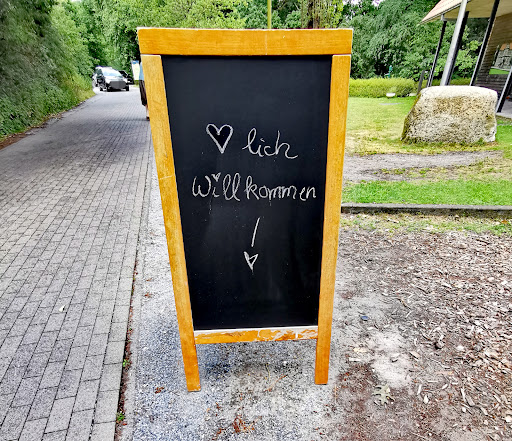 ♡ lich
Willkommen